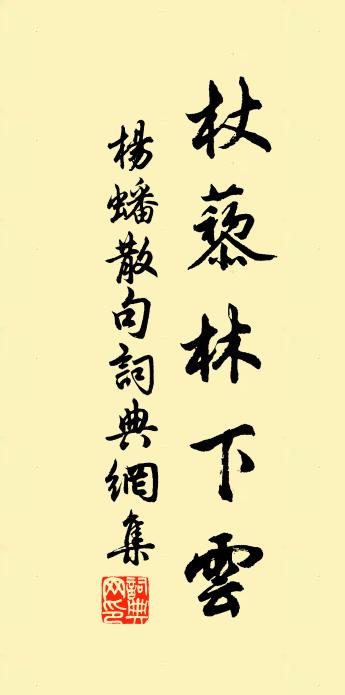 杖藜林下雲
楊蟠散句詞典網集
詞典網印